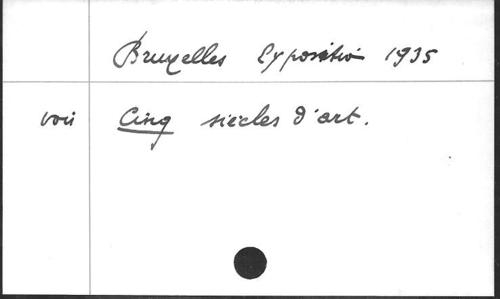 Bruxelles Exposition 1935
voir Cinq siècles d'art.